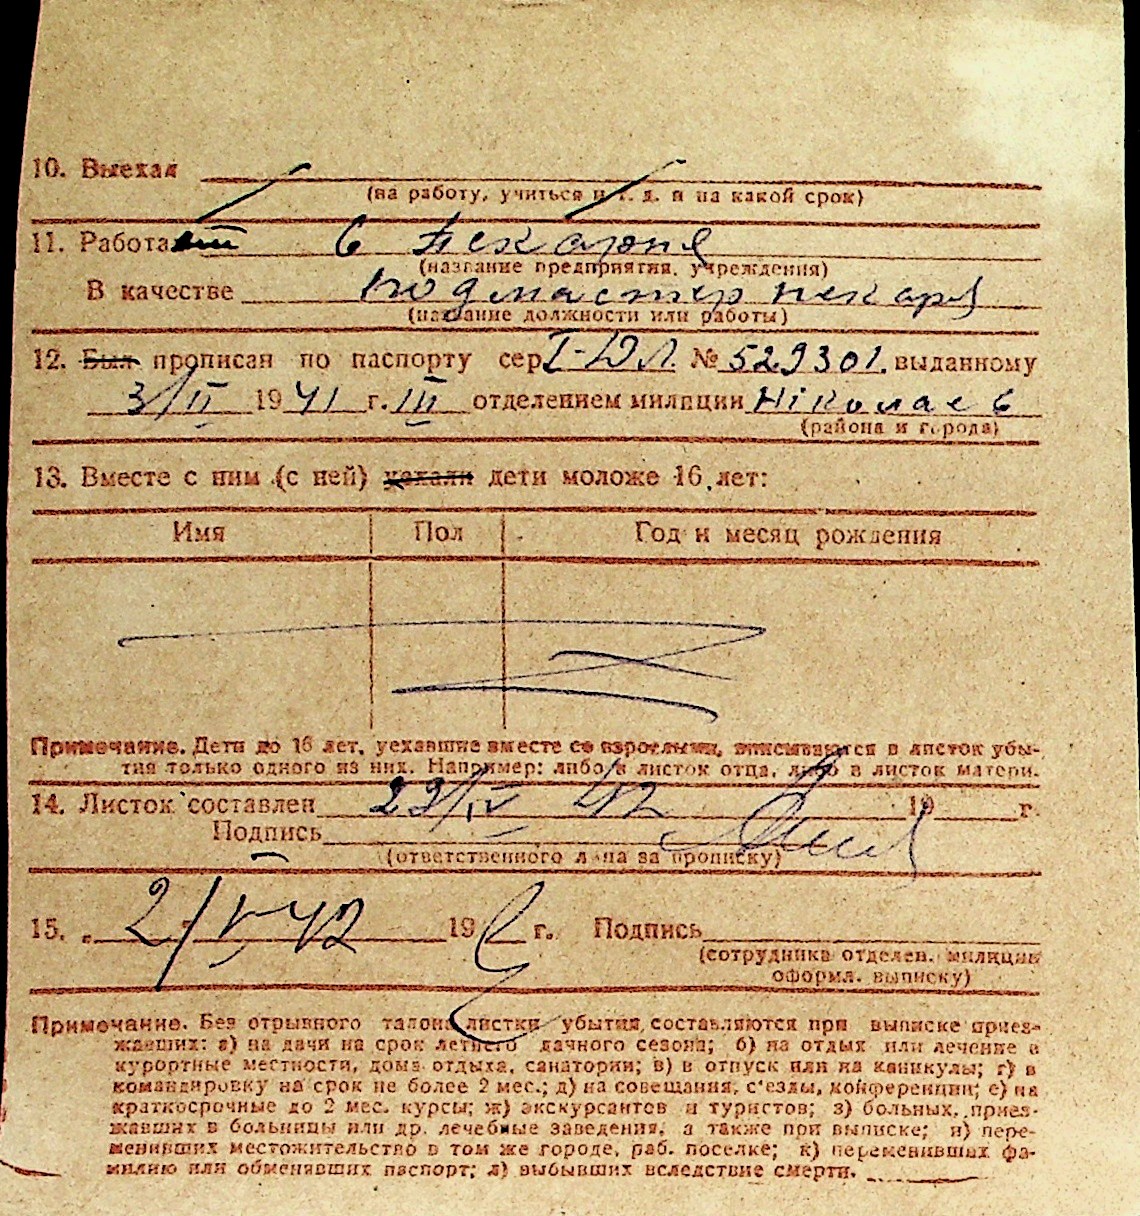 10. Выехал
(на работу, учиться и т. д. и на какой срок)
11. Работает в пекарня
(название предприятия, учреждения)
В качестве подмастер пекаря
(название должности или работы)
12. Был прописан по паспорту сер. I-ЮЛ. № 529301. выданному
3/II 1941 г. III отделением милиции Ніколаев
(района и города)
13. Вместе с ним (с ней) уехали дети моложе 16 лет:
Имя Пол Год и месяц рождения
Примечание. Дети до 16 лет, уехавшие вместе со взрослыми, вписываются в листок убы-
тия только одного из них. Например: либо в листок отца, либо в листок матери.
14. Листок составлен 29/IV 42 19 г.
Подпись
(ответственного лица за прописку)
15. „ 2/V-42 19 г. Подпись
(сотрудника отделен. милиции
оформл. выписку)
Примечание. Без отрывного талона листки убытия составляются при выписке приез-
жавших: а) на дачи на срок летнего дачного сезона; б) на отдых или лечение в
курортные местности, дома отдыха, санатории; в) в отпуск или на каникулы; г) в
командировку на срок не более 2 мес.; д) на совещания, с'езды, конференции; е) на
краткосрочные до 2 мес. курсы; ж) экскурсантов и туристов; з) больных, приез-
жавших в больницы или др. лечебные заведения, а также при выписке; и) пере-
менивших местожительство в том же городе, раб. поселке; к) переменивших фа-
милию или обменявших паспорт; л) выбывших вследствие смерти.